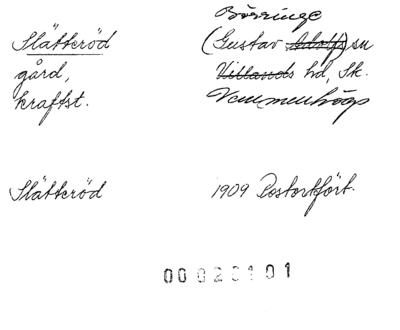 Börringe
Slätteröd (Gustav Adolfs) sn
gård, Villands hd, Sk.
kraftst. Vemmenhögs
Slätteröd 1909 Postortfört.
00020101